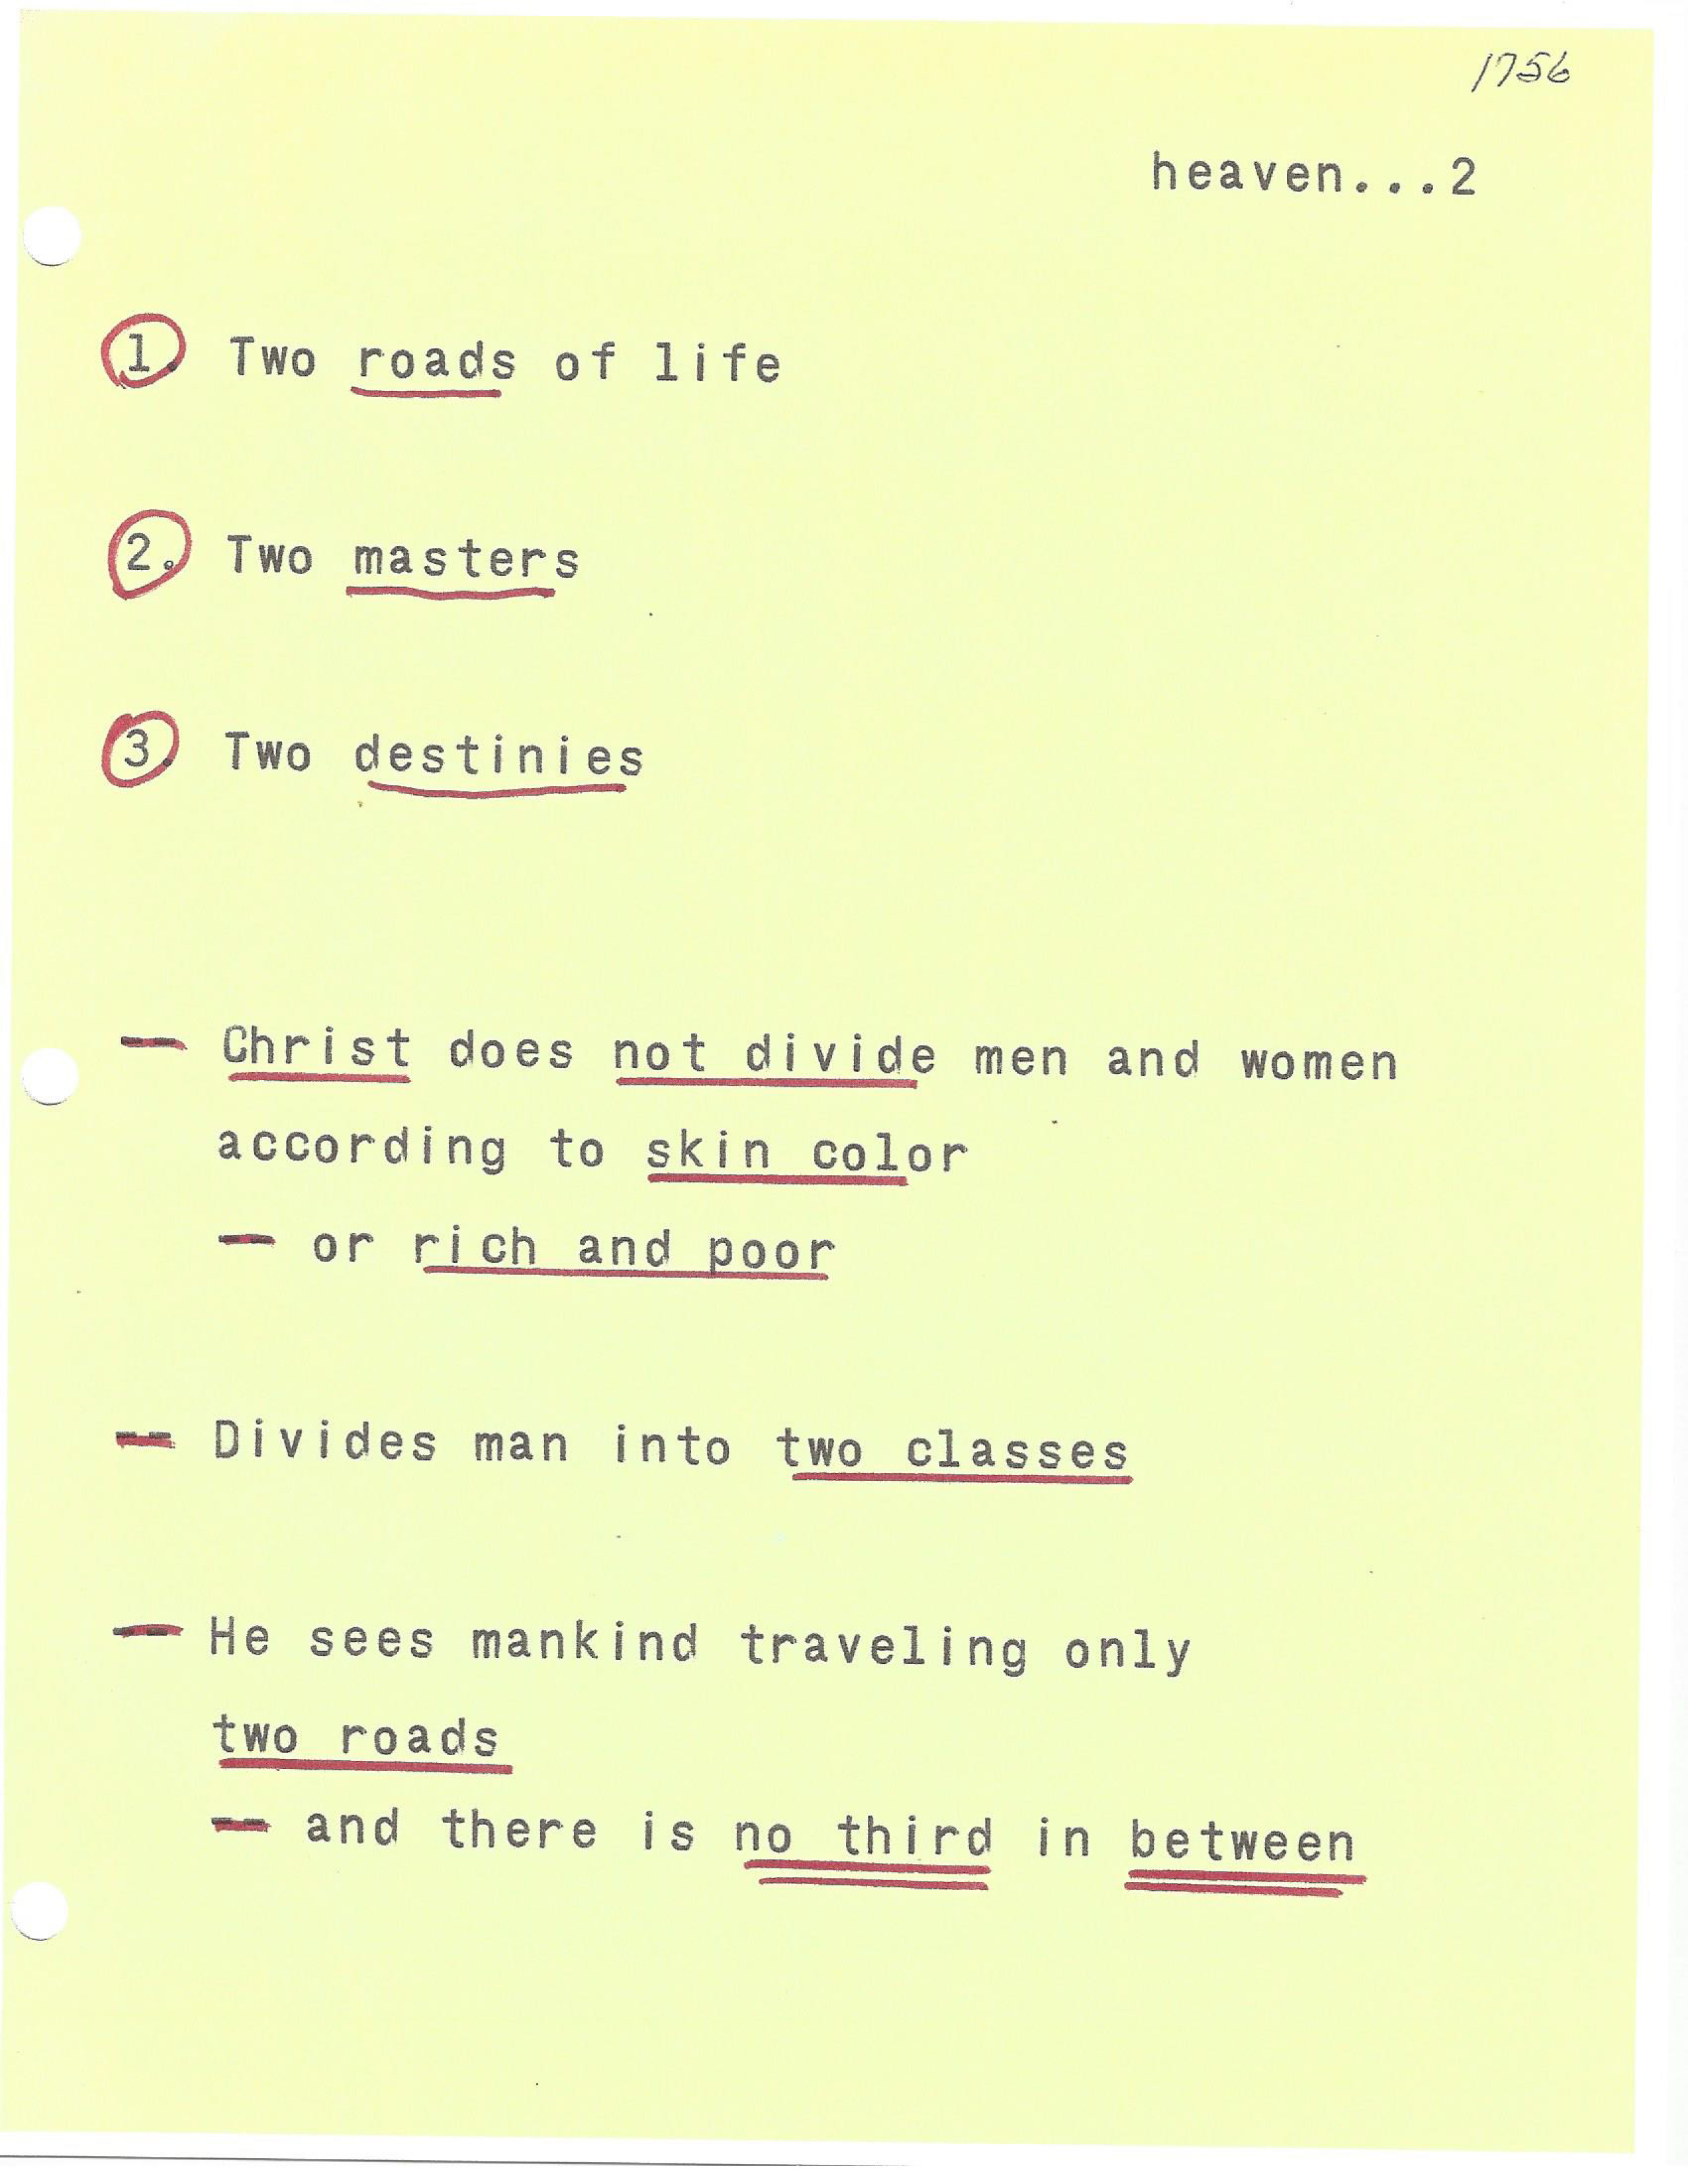 1756
heaven...2
1. Two roads of life
2. Two masters
3. Two destinies
-- Christ does not divide men and women
according to skin color
-- or rich and poor
-- Divides man into two classes
-- He sees mankind traveling only
two roads
-- and there is no third in between